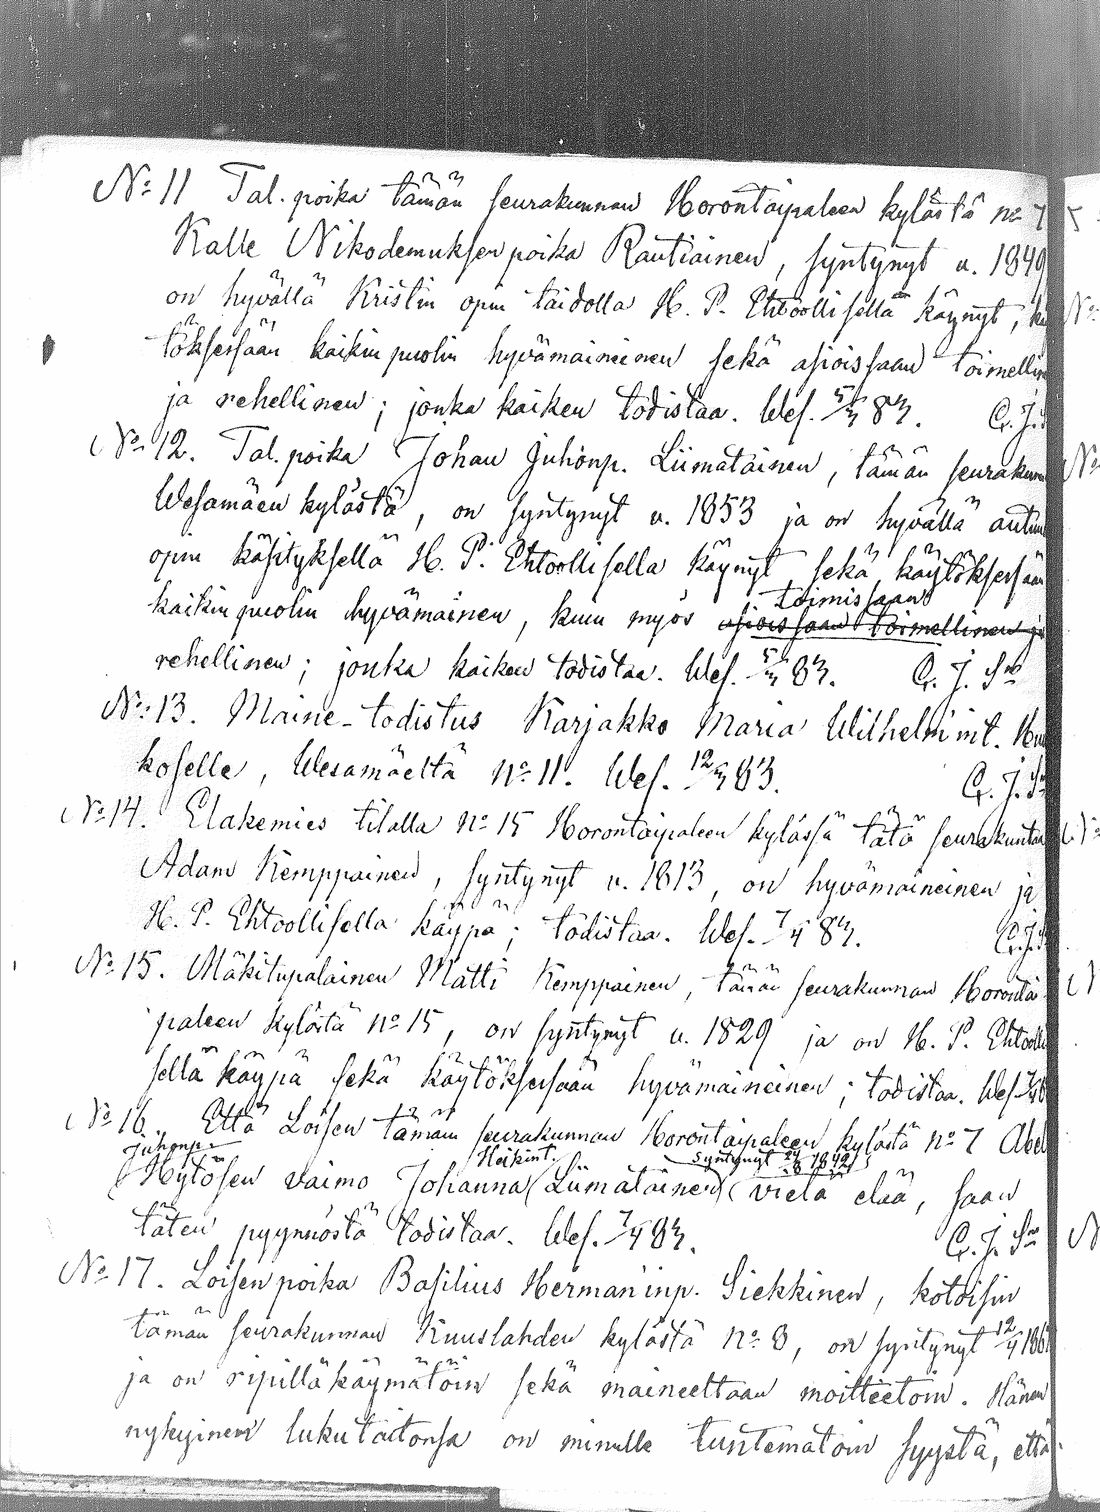 No 11 Tal. poika tämän seurakunnan Horontaipaleen kylästä no 7
Kalle Nikodemuksen poika Rautiainen, syntynyt v. 1849
on hyvällä Kristin opin taidolla H. P. Ehtoollisella käynyt, kä
töksessään kaikin puolin hyvämaineinen sekä asioissaan toimellin
ja rehellinen; jonka kaiken todistaa. Wes. 5/3 83. C. J. S
No 12. Tal. poika Johan Juhonp. Liimatainen, tämän seurakunn
Wesamäen kylästä, on syntynyt v. 1853 ja on hyvällä autuu
opin käsityksellä H. P. Ehtoollisella käynyt sekä käytöksessään
toimissaan
kaikin puolin hyvämainen, kuin myös asioissaan toimellinen ja
rehellinen; jonka kaiken todistaa. Wes. 5/3 83. C. J. Sn
No 13. Maine-todistus Karjakko Maria Wilhelmint. Huu
koselle, Wesamäeltä no 11. Wes. 12/3 83. C. J. Sn
No 14. Elakemies tilalla no 15 Horontaipaleen kylässä tätä seurakuntaa
Adam Kemppainen, syntynyt v. 1813, on hyvämaineinen ja
H. P. Ehtoollisella käypä; todistaa. Wes. 7/4 83. C. J. S
No 15. Mäkitupalainen Matti Kemppainen, tämän seurakunnan Horontai
paleen kylästä no 15, on syntynyt v. 1829 ja on H. P. Ehtoolli
sella käypä sekä käytöksessään hyvämaineinen; todistaa. Wes. 7/4 8
No 16. Että Loisen tämän seurakunnan Horontaipaleen kylästä no 7 Abel
Juhonp. Heikint. syntynyt 24/8 1842
Hytösen vaimo Johanna Liimatainen vielä elää, saan
täten pyynnöstä todistaa. Wes. 7/4 83. C. J. Sn
No 17. Loisen poika Basilius Herman'inp. Siekkinen, kotoisin
tämän seurakunnan Kuuslahden kylästä no 8, on syntynyt 12/4 186
ja on ripilläkäymätöin sekä maineeltaan moitteetoin. Hänen
nykyinen lukutaitonsa on minulle tuntematoin syystä, että